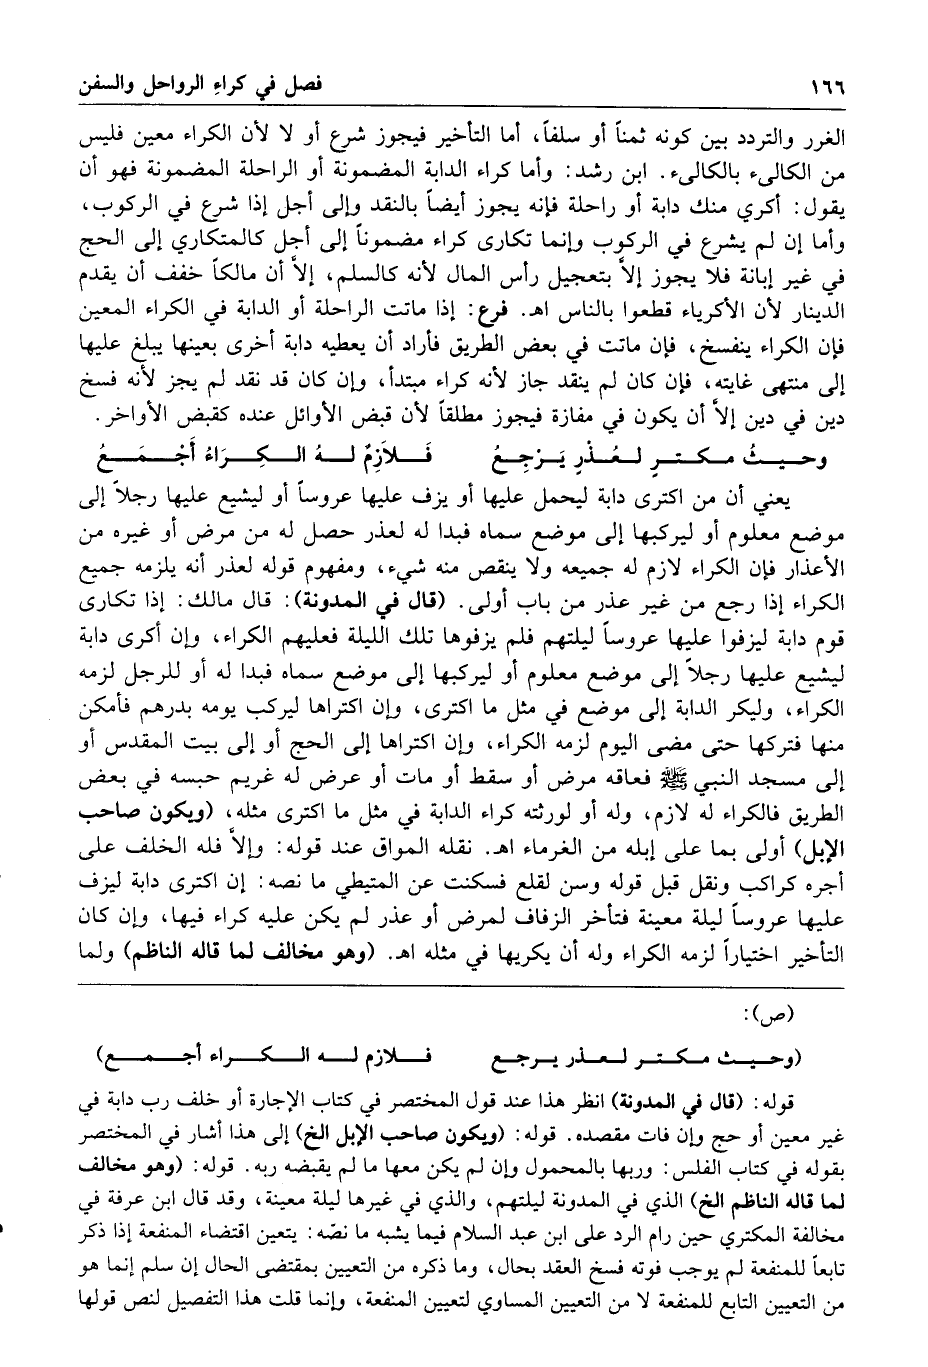 ١٦٦ فصل في كراءِ الرواحل والسفن
الغرر والتردد بين كونه ثمناً أو سلفاً، أما التأخير فيجوز شرع أو لا لأن الكراء معين فليس
من الكالىء بالكالىء. ابن رشد: وأما كراء الدابة المضمونة أو الراحلة المضمونة فهو أن
يقول: أكري منك دابة أو راحلة فإنه يجوز أيضاً بالنقد وإلى أجل إذا شرع في الركوب،
وأما إن لم يشرع في الركوب وإنما تكارى كراء مضموناً إلى أجل كالمتكاري إلى الحج
في غير إبانة فلا يجوز إلاَّ بتعجيل رأس المال لأنه كالسلم، إلاَّ أن مالكاً خفف أن يقدم
الدينار لأن الأكرياء قطعوا بالناس اهـ. فرع: إذا ماتت الراحلة أو الدابة في الكراء المعين
فإن الكراء ينفسخ، فإن ماتت في بعض الطريق فأراد أن يعطيه دابة أخرى بعينها يبلغ عليها
إلى منتهى غايته، فإن كان لم ينقد جاز لأنه كراء مبتدأ، وإن كان قد نقد لم يجز لأنه فسخ
دين في دين إلاَّ أن يكون في مفازة فيجوز مطلقاً لأن قبض الأوائل عنده كقبض الأواخر.
وحيثُ مكترٍ لعُذْرٍ يَرْجِعُ فَلاَزِمٌ لهُ الكِرَاءُ أَجْمَعُ
يعني أن من اكترى دابة ليحمل عليها أو يزف عليها عروساً أو ليشيع عليها رجلاً إلى
موضع معلوم أو ليركبها إلى موضع سماه فبدا له لعذر حصل له من مرض أو غيره من
الأعذار فإن الكراء لازم له جميعه ولا ينقص منه شيء، ومفهوم قوله لعذر أنه يلزمه جميع
الكراء إذا رجع من غير عذر من باب أولى. (قال في المدونة): قال مالك: إذا تكارى
قوم دابة ليزفوا عليها عروساً ليلتهم فلم يزفوها تلك الليلة فعليهم الكراء، وإن أكرى دابة
ليشيع عليها رجلاً إلى موضع معلوم أو ليركبها إلى موضع سماه فبدا له أو للرجل لزمه
الكراء، وليكر الدابة إلى موضع في مثل ما اكترى، وإن اكتراها ليركب يومه بدرهم فأمكن
منها فتركها حتى مضى اليوم لزمه الكراء، وإن اكتراها إلى الحج أو إلى بيت المقدس أو
إلى مسجد النبي ﷺ فعاقه مرض أو سقط أو مات أو عرض له غريم حبسه في بعض
الطريق فالكراء له لازم، وله أو لورثته كراء الدابة في مثل ما اكترى مثله، (ويكون صاحب
الإبل) أولى بما على إبله من الغرماء اهـ. نقله المواق عند قوله: وإلاَّ فله الخلف على
أجره كراكب ونقل قبل قوله وسن لقلع فسكنت عن المتيطي ما نصه: إن اكترى دابة ليزف
عليها عروساً ليلة معينة فتأخر الزفاف لمرض أو عذر لم يكن عليه كراء فيها، وإن كان
التأخير اختياراً لزمه الكراء وله أن يكريها في مثله اهـ. (وهو مخالف لما قاله الناظم) ولما
(ص):
(وحيث مكتر لعذر يرجع فلازم له الكراء أجمع)
قوله: (قال في المدونة) انظر هذا عند قول المختصر في كتاب الإجارة أو خلف رب دابة في
غير معين أو حج وإن فات مقصده. قوله: (ويكون صاحب الإبل الخ) إلى هذا أشار في المختصر
بقوله في كتاب الفلس: وربها بالمحمول وإن لم يكن معها ما لم يقبضه ربه. قوله: (وهو مخالف
لما قاله الناظم الخ) الذي في المدونة ليلتهم، والذي في غيرها ليلة معينة، وقد قال ابن عرفة في
مخالفة المكتري حين رام الرد على ابن عبد السلام فيما يشبه ما نصّه: يتعين اقتضاء المنفعة إذا ذكر
تابعاً للمنفعة لم يوجب فوته فسخ العقد بحال، وما ذكره من التعيين بمقتضى الحال إن سلم إنما هو
من التعيين التابع للمنفعة لا من التعيين المساوي لتعيين المنفعة، وإنما قلت هذا التفصيل لنص قولها